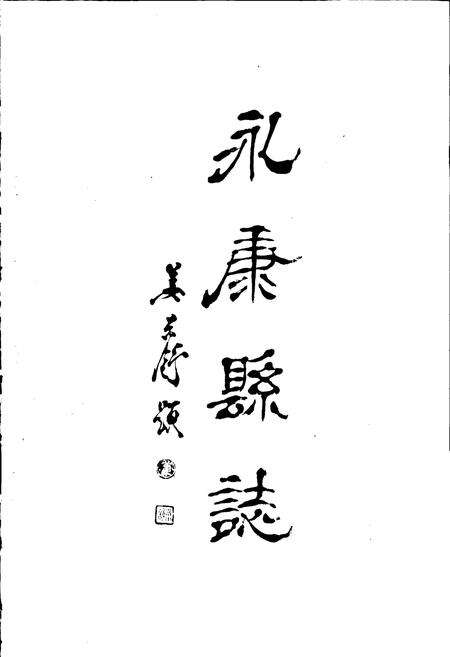 永康縣誌
姜东舒題